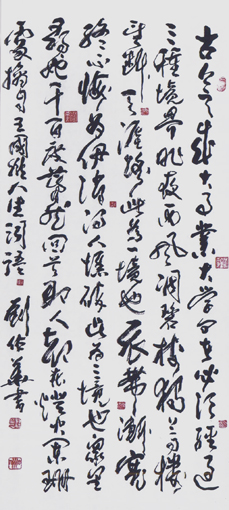 古今之成大事业大学问者必须经过
三种境界昨夜西风凋碧树独上高楼
望断天涯路此为一境也衣带渐宽
终不悔为伊消得人憔悴此为二境也众里
寻他千百度蓦然回首那人却在灯火阑珊
处撷自王国维人生词语
刘作华书